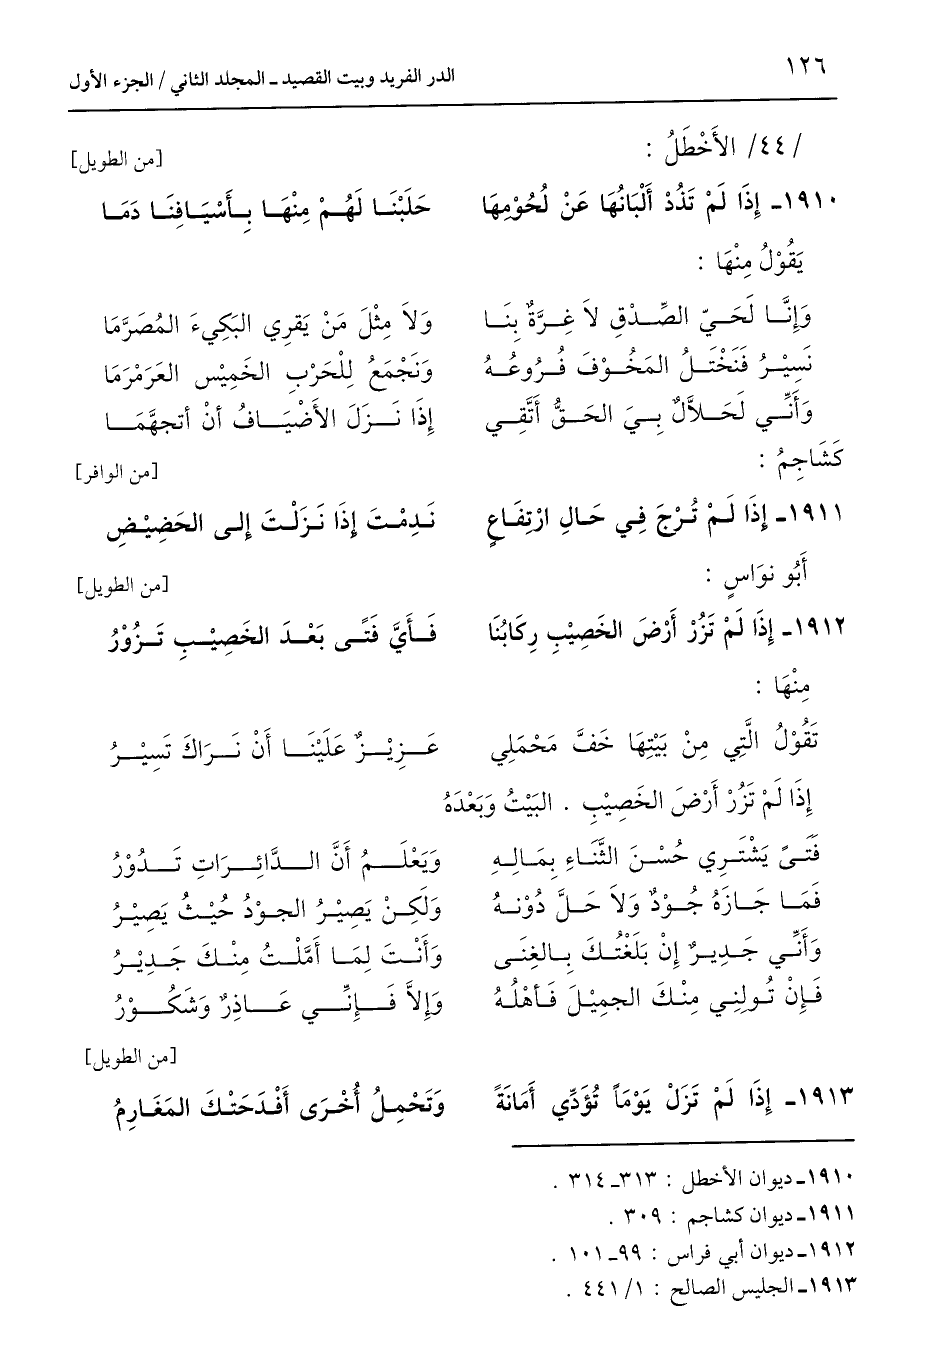 ١٢٦
الدر الفريد وبيت القصيد ـ المجلد الثاني / الجزء الأول
/ ٤٤/ الأَخْطَلُ :
[من الطويل]
١٩١٠ـ إِذَا لَمْ تَذُدْ أَلْبَانُهَا عَنْ لُحُوْمِهَا حَلَبْنَا لَهُمْ مِنْهَا بِأَسْيَافِنَا دَمَا
يَقُوْلُ مِنْهَا :
وَإِنَّا لَحَيّ الصِّدْقِ لاَ غِرَّةٌ بِنَا وَلاَ مِثْلَ مَنْ يَقرِي البَكِيءَ المُصَرَّمَا
نَسِيْرُ فَنَحْتَلُ المَخُوْفَ فُرُوعُهُ وَنَجْمَعُ لِلْحَرْبِ الخَمِيْسِ العَرَمْرَمَا
وَأَنِّي لَحَلاَّلٌ بِيَ الحَقُّ أَتَّقِي إِذَا نَزَلَ الأَضْيَافُ أنْ أتجهَّمَا
كَشَاجِمُ :
[من الوافر]
١٩١١ـ إِذَا لَمْ تُرْجَ فِي حَالِ ارْتِفَاعٍ نَدِمْتَ إِذَا نَزَلْتَ إِلى الحَضِيْضِ
أَبُو نوَاسٍ :
[من الطويل]
١٩١٢ـ إِذَا لَمْ تَزُرْ أَرْضَ الخَصِيْبِ رِكَابُنَا فَأَيَّ فَتًى بَعْدَ الخَصِيْبِ تَزُوْرُ
مِنْهَا :
تَقُوْلُ الَّتِي مِنْ بَيْتِهَا خَفَّ مَحْمَلِي عَزِيْزٌ عَلَيْنَا أَنْ نَرَاكَ تَسِيْرُ
إِذَا لَمْ تَزُرْ أَرْضَ الخَصِيْبِ . البَيْتُ وَبَعْدَهُ
فَتَىً يَشْتَرِي حُسْنَ الثَّنَاءِ بِمَالِهِ وَيَعْلَمُ أَنَّ الدَّائِرَاتِ تَدُوْرُ
فَمَا جَازَهُ جُوْدٌ وَلاَ حَلَّ دُوْنَهُ وَلَكِنْ يَصِيْرُ الجوْدُ حَيْثُ يَصِيْرُ
وَأَنِّي جَدِيرٌ إِنْ بَلَغْتُكَ بِالغِنَى وَأَنْتَ لِمَا أَمَّلْتُ مِنْكَ جَدِيْرُ
فَإِنْ تُولِنِي مِنْكَ الجمِيْلَ فَأهْلُهُ وَإِلاَّ فَإِنِّي عَاذِرٌ وَشَكُوْرُ
[من الطويل]
١٩١٣ـ إِذَا لَمْ تَزَلْ يَوْمَاً تُؤَدِّي أَمَانَةً وَتَحْمِلُ أُخْرَى أَفْدَحَتْكَ المَغَارِمُ
١٩١٠ـ ديوان الأخطل : ٣١٣ـ ٣١٤ .
١٩١١ـ ديوان كشاجم : ٣٠٩ .
١٩١٢ـ ديوان أبي فراس : ٩٩ـ ١٠١ .
١٩١٣ـ الجليس الصالح : ١/ ٤٤١ .